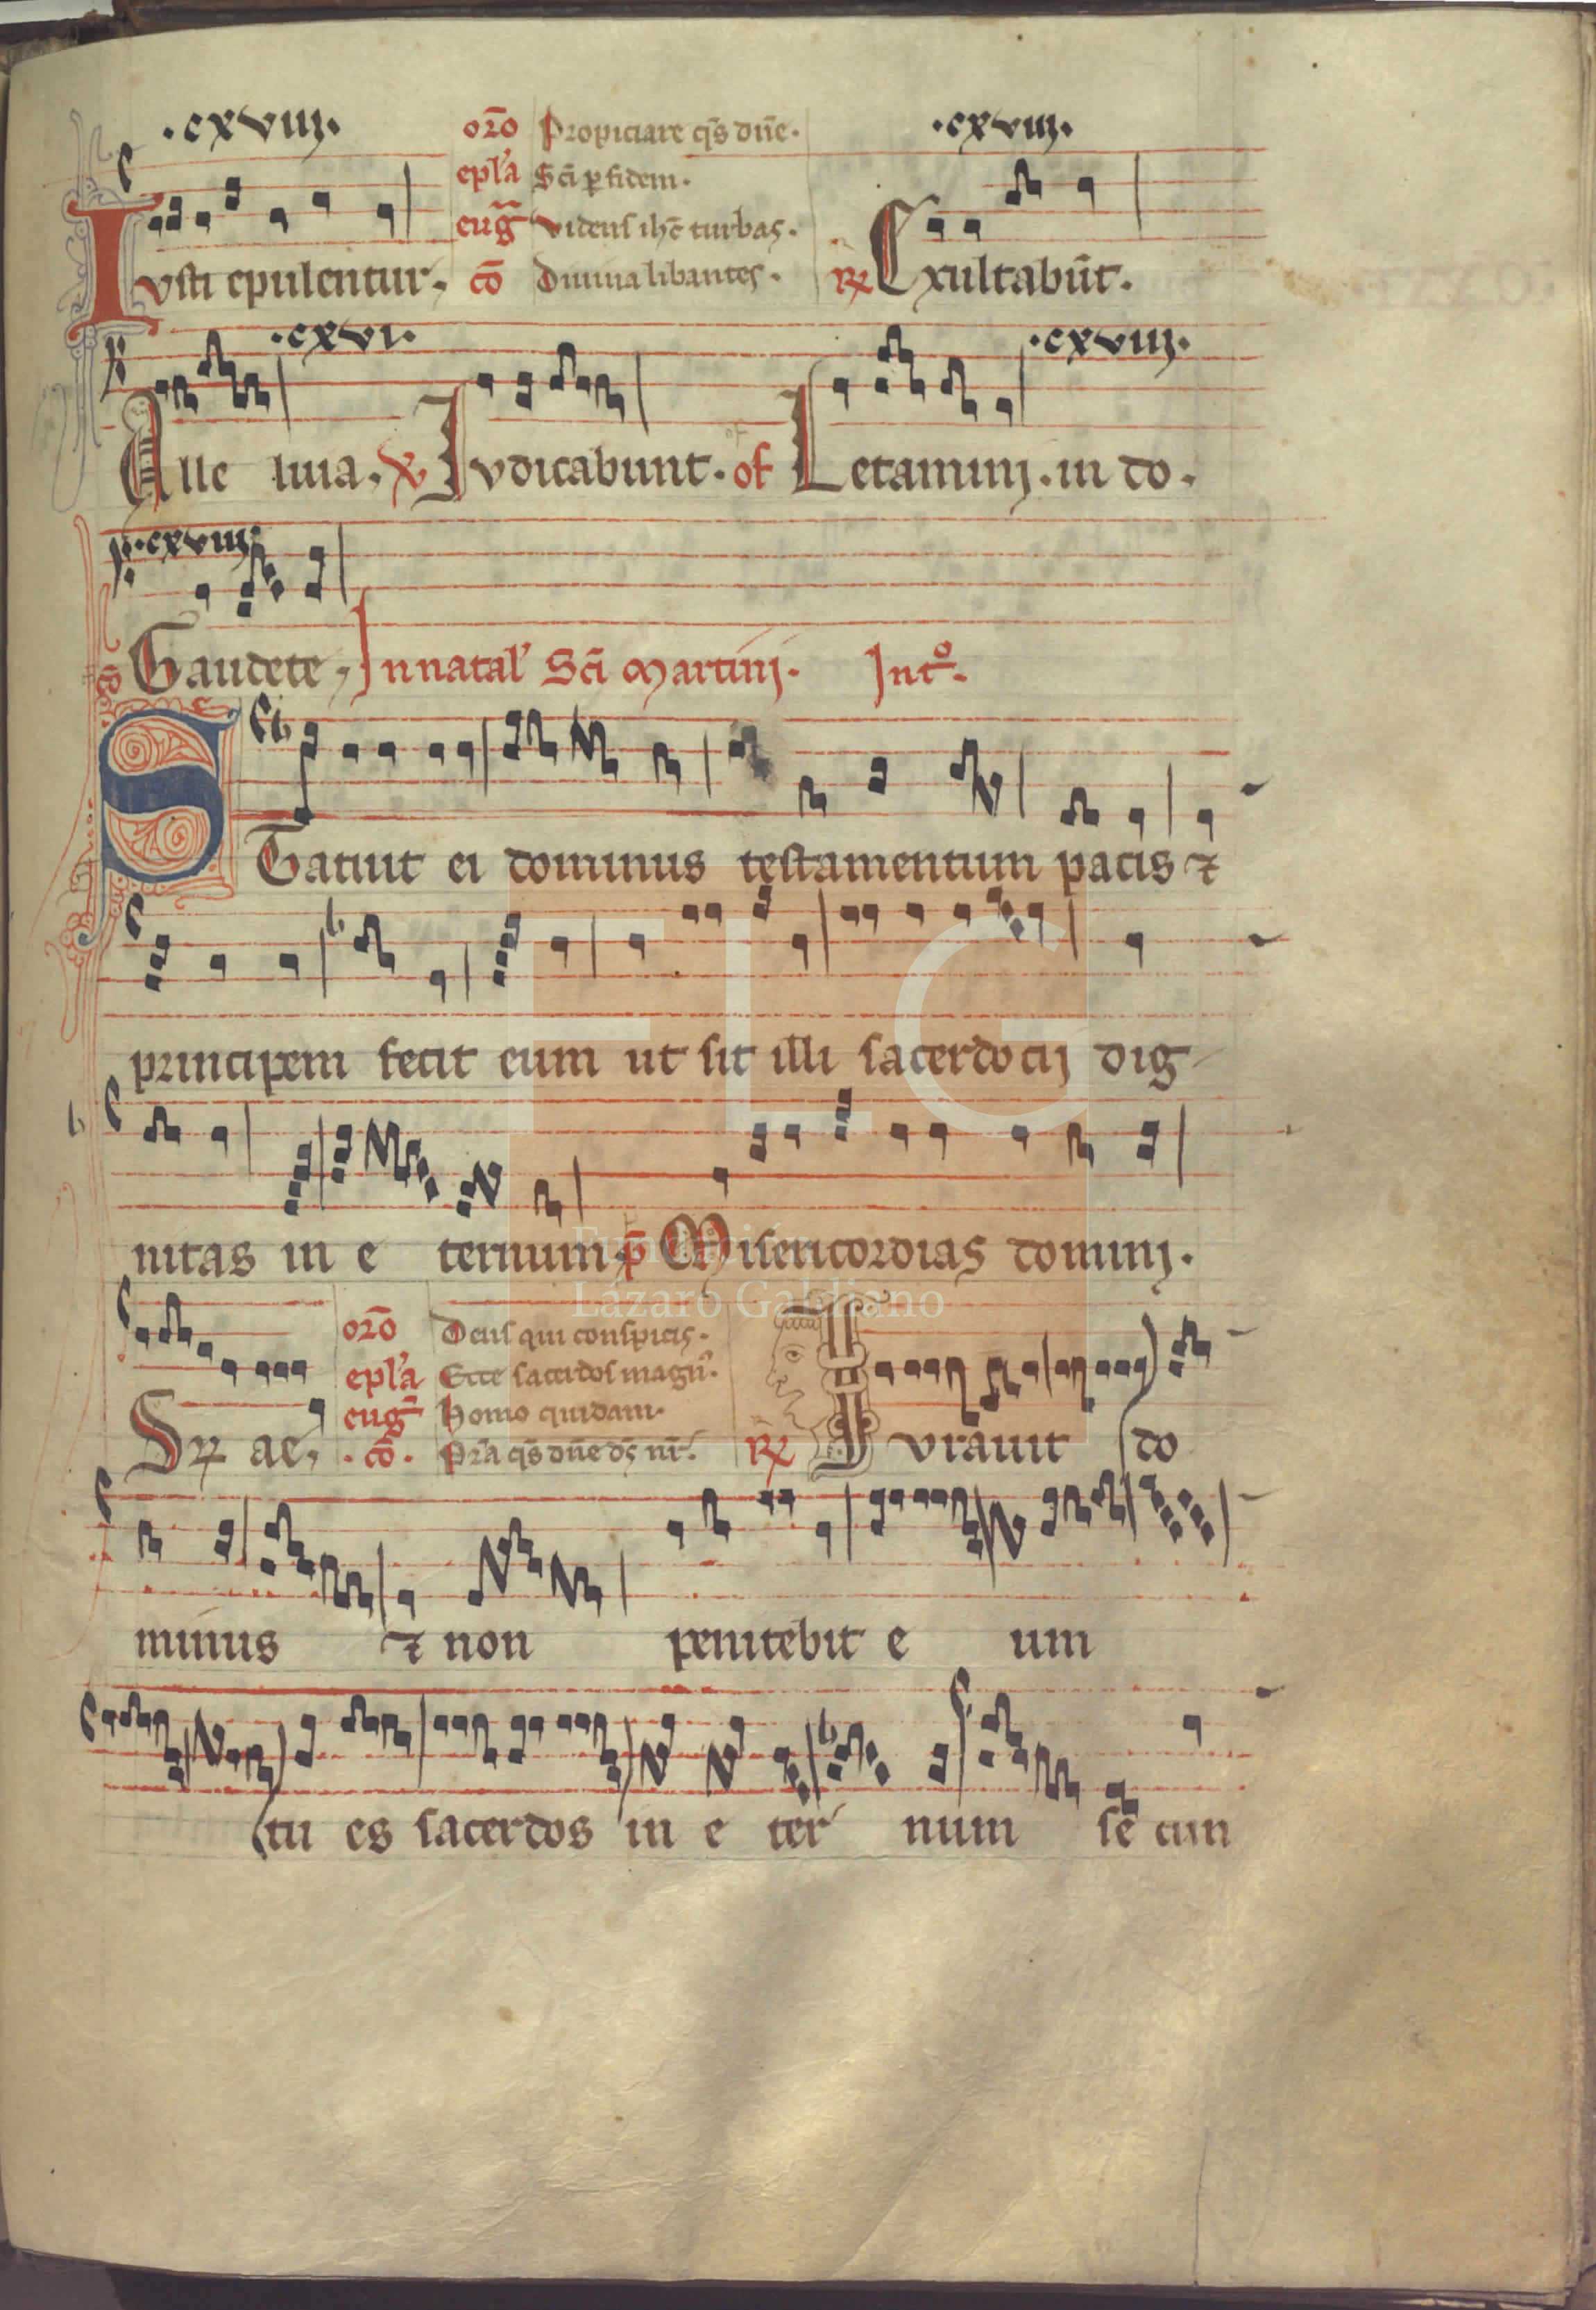 ·cxviii·
oro Propiciare qs dne·
·cxviii·
epla Sci p fidem·
eug Videns ihc turbas·
Iusti epulentur, co Divina libantes· R Exultabut·
·cxvi· ·cxviii·
Alle luia, V Iudicabunt· of Letamini· in do·
·cxviii·
co Gaudete, In natal Sci Martini· Into·
STatuit ei dominus testamentum pacis ⁊
principem fecit eum ut sit illi sacerdocij dig-
nitas in e ternum· p Misericordias domini·
oro Deus qui conspicis·
epla Ecce sacerdos magn·
eug Homo quidam·
Sp ae, ·co· Pra qs dne ds nr· R Iuravit do
minus ⁊ non penitebit e um
tu es sacerdos in e ter num se cun
FLG
Fundación
Lázaro Galdiano